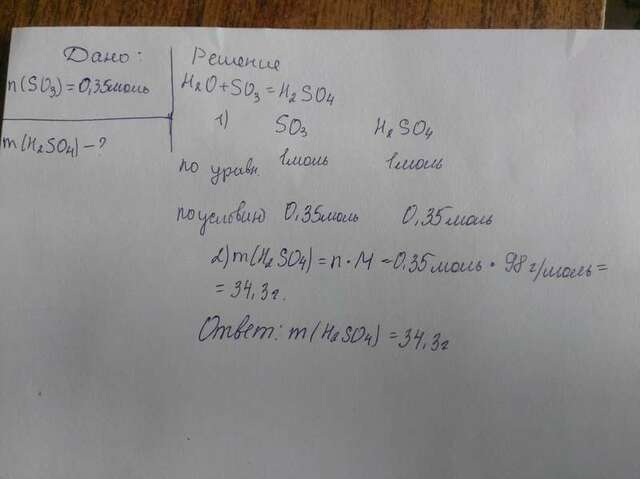 Дано:
n(SO₃)=0,35моль
m(H₂SO₄)-?
Решение
H₂O+SO₃=H₂SO₄
1) SO₃ H₂SO₄
по уравн. 1моль 1моль
по условию 0,35моль 0,35моль
2)m(H₂SO₄)=n·M=0,35моль·98г/моль=
=34,3г.
Ответ: m(H₂SO₄)=34,3г